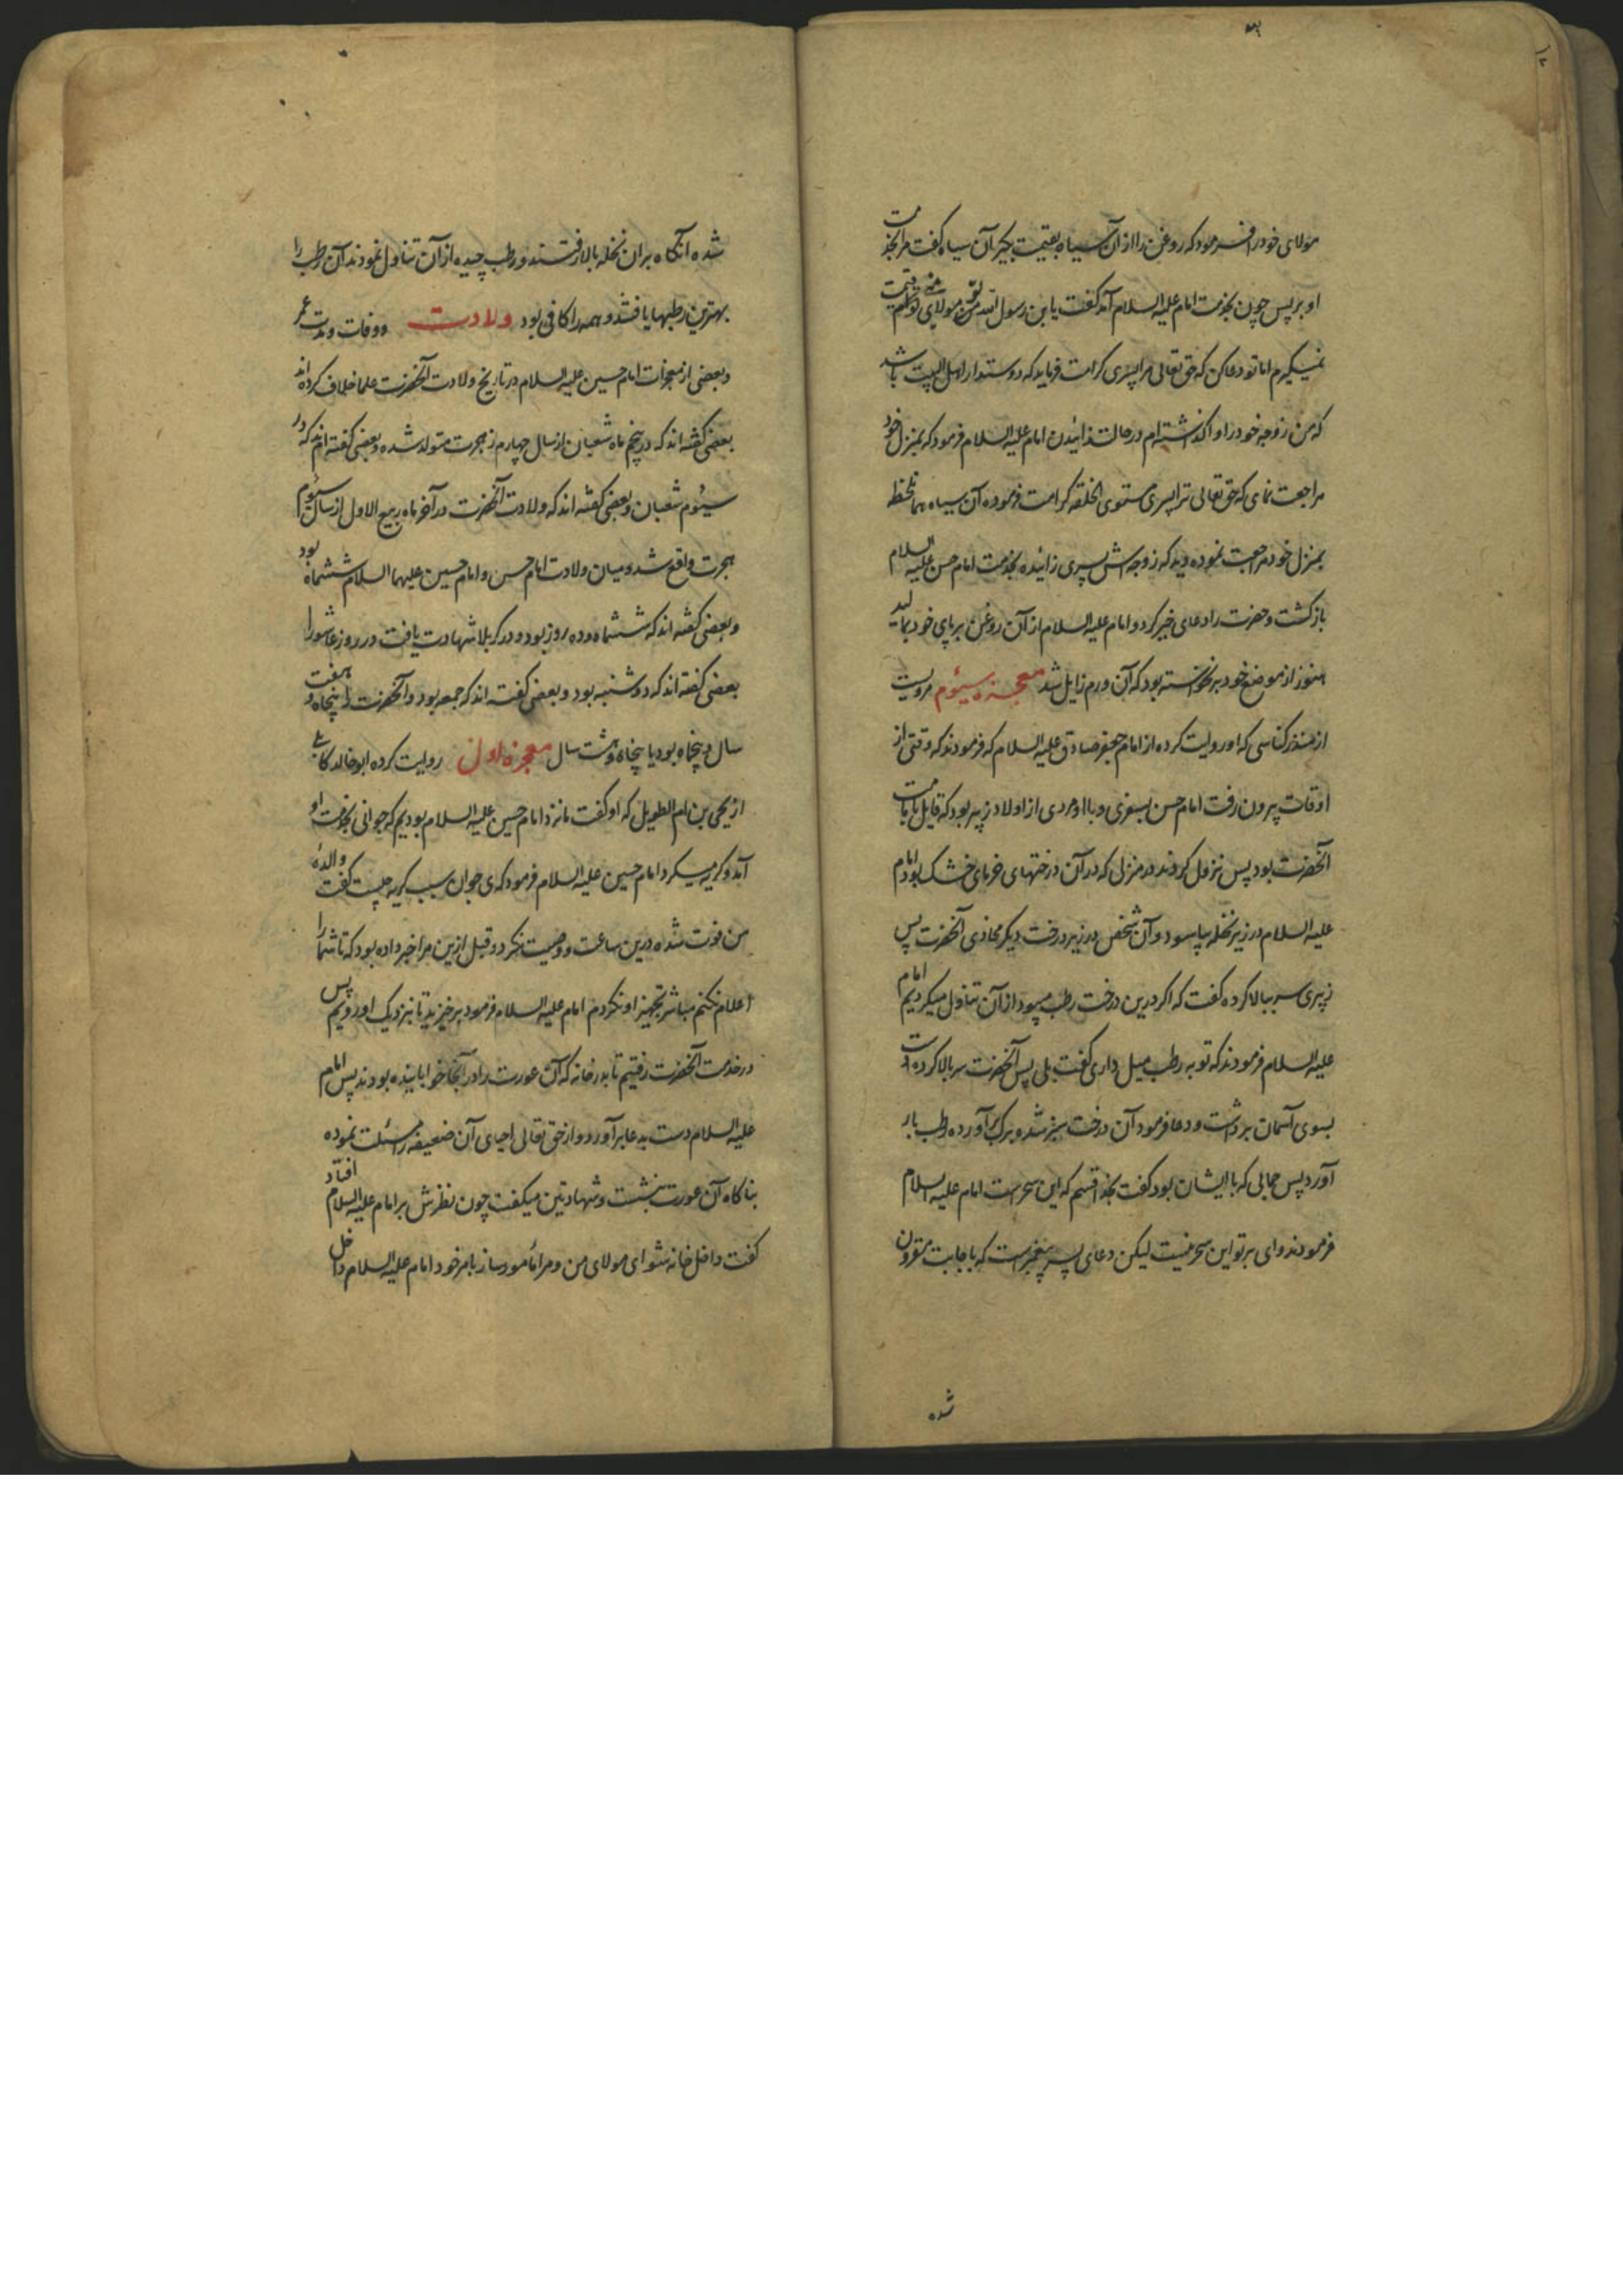 مولای خود را فرمود که روغن را از آن سیاه بقیمت بگیر آن سیاه گفت مرا بخدمت
او بر پس چون بخدمت امام علیه السلام آمد گفت یا بن رسول الله من مولای توام قیمت
نمیگیرم اما تو دعا کن که حق تعالی مرا پسری کرامت فرماید که دوستدار اهل البیت باشد
که من زوجه خود را واگذاشته ام در حالت زائیدن امام علیه السلام فرمود که بمنزل خود
مراجعت نمای که حق تعالی ترا پسری مستوی الخلقه کرامت فرموده آن سیاه همانلحظه
بمنزل خود مراجعت نموده دید که زوجه اش پسری زائیده بخدمت امام حسن علیه السلام
بازگشت و حضرت را دعای خیر کرد و امام علیه السلام از آن روغن بر پای خود بمالید
هنوز از موضع خود برنخواسته بود که آن ورم زایل شد معجزه سیئوم مرویست
از منذر کناسی که او روایت کرده از امام جعفر صادق علیه السلام که فرمودند که وقتی از
اوقات بیرون رفت امام حسن بسفری و با او مردی از اولاد زبیر بود که قایل بامامت
آنحضرت بود پس نزول کردند در منزلی که در آن درختهای خرمای خشک بود امام
علیه السلام در زیر نخله بیاسود و آن شخص در زیر درخت دیگر محاذی آنحضرت پس
زبیری سر ببالا کرده گفت که اگر درین درخت رطب میبود از آن تناول میکردیم امام
علیه السلام فرمودند که تو به رطب میل داری گفت بلی پس آنحضرت سر بالا کرده دست
بسوی آسمان برداشت و دعا فرمود آن درخت سبز شد و برگ برآورده رطب بار
آورد پس جمالی که با ایشان بود گفت بخدا قسم که این سحر است امام علیه السلام
فرمودند وای بر تو این سحر نیست لیکن دعای پسر پیغمبر است که باجابت مقرون
شده
شده آنگاه بر آن نخله بالا رفتند و رطب چیده از آن تناول نمودند آن رطب را
بهترین رطبها یافتند و همه را کافی بود ولادت و وفات و مدت عمر
و بعضی از معجزات امام حسین علیه السلام در تاریخ ولادت آنحضرت علما خلاف کرده اند
بعضی گفته اند که در پنجم ماه شعبان از سال چهارم ز هجرت متولد شده و بعضی گفته اند که در
سیئوم شعبان و بعضی گفته اند که ولادت آنحضرت در آخر ماه ربیع الاول از سال سیئوم
هجرت واقع شد و میان ولادت امام حسن و امام حسین علیهما السلام ششماه بود
و بعضی گفته اند که ششماه و ده روز بود و در کربلا شهادت یافت در روز عاشورا
بعضی گفته اند که دوشنبه بود و بعضی گفته اند که جمعه بود و آنحضرت را پنجاه و هفت
سال و پنجماه بود یا پنجاه و هشت سال معجزه اول روایت کرده ابو خالد کابلی
از یحیی بن ام الطویل که او گفت ما نزد امام حسین علیه السلام بودیم که جوانی بخدمت او
آمد و گریه میکرد امام حسین علیه السلام فرمود که ی جوان سبب گریه چیست گفت والده
من فوت شده درین ساعت و وصیت نکرد و قبل ازین مرا خبر داده بود که تا شما را
اعلام نکنم مباشر تجهیز او نکردم امام علیه السلام فرمود برخیزید تا بنزدیک او رویم پس
در خدمت آنحضرت رفتیم تا بدر خانه که آن عورت را در آنجا خوابانیده بودند پس امام
علیه السلام دست بدعا برآورد و از حق تعالی احیای آن ضعیفه را مسئلت نموده
بناگاه آن عورت بنشست و شهادتین میگفت چون نظرش بر امام علیه السلام افتاد
گفت داخل خانه شو ای مولای من و مرا مأمور ساز بامر خود امام علیه السلام داخل